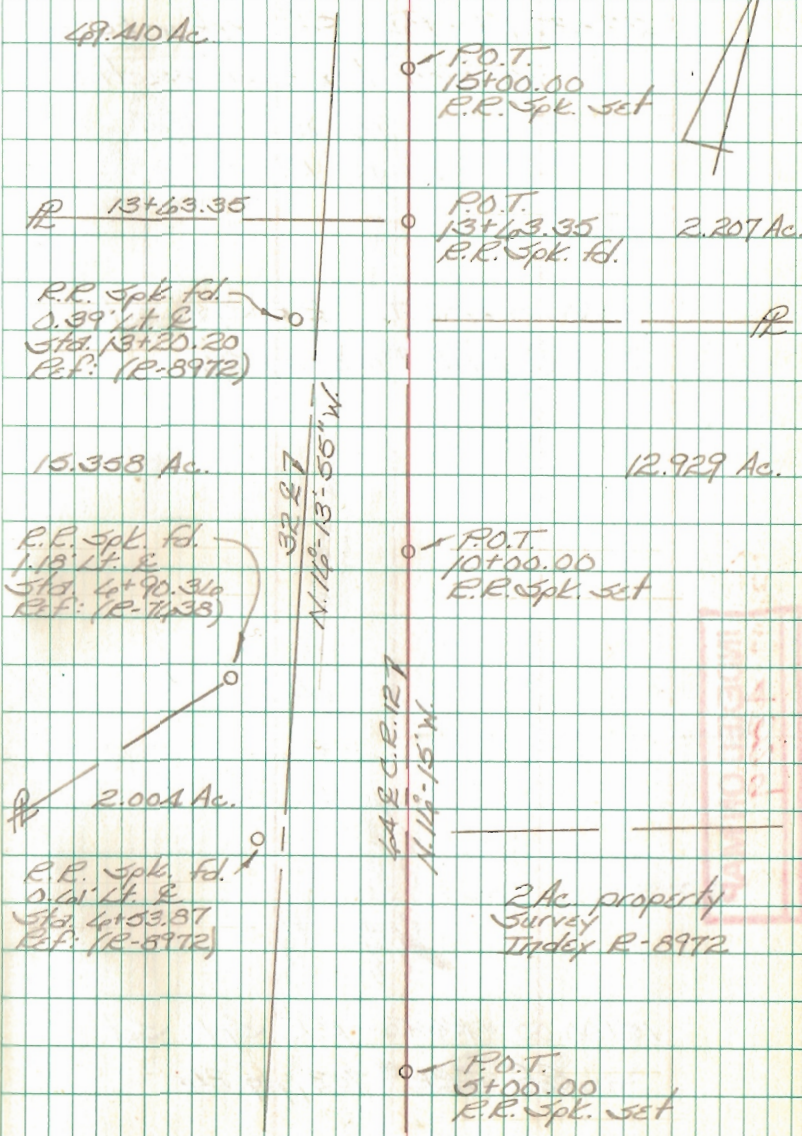 49.410 Ac.
P.O.T.
15+00.00
R.R. Spk. set
℄ 13+63.35
P.O.T.
13+63.35
R.R. Spk. fd.
2.207 Ac.
R.R. Spk. fd.
0.39' Lt. ℄
Sta. 13+20.20
Ref: (R-8972)
℄
15.358 Ac.
12.929 Ac.
32 ℄
N.16°-13'-55" W.
R.R. Spk. fd.
1.18' Lt. ℄
Sta. 6+90.36
Ref: (R-7638)
P.O.T.
10+00.00
R.R. Spk. set
64 ℄ C.R. 127
N.16°-15' W.
℄
2.004 Ac.
R.R. Spk. fd.
0.61' Lt. ℄
Sta. 6+53.87
Ref: (R-8972)
2 Ac. property
Survey
Index R-8972
P.O.T.
5+00.00
R.R. Spk. set